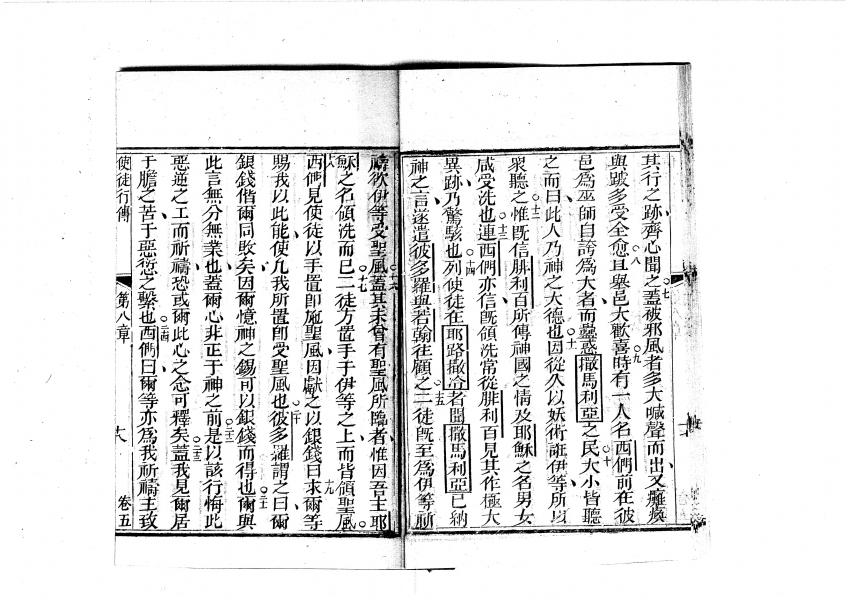 其行之跡齊心聞之蓋被邪風者多大喊聲而出又癱瘓
與跛多受全愈且舉邑大歡喜時有一人名西們前在彼
邑為巫師自誇為大者而蠱惑撒馬利亞之民大小皆聽
之而曰此人乃神之大德也因從久以妖術誑伊等所以
衆聽之惟既信腓利百所傳神國之情及耶穌之名男女
咸受洗也連西們亦信既領洗常從腓利百見其作極大
異跡乃驚駭也列使徒在耶路撒冷者聞撒馬利亞已納
神之言遂遣彼多羅與若翰往顧之二徒既至為伊等前
禱欲伊等受聖風蓋其未曾有聖風所臨者惟因吾主耶
穌之名領洗而已二徒方置手于伊等之上而皆領聖風
西們見使徒以手置即施聖風因獻之以銀錢曰求爾等
賜我以此能使凡我所置即受聖風也彼多羅謂之曰爾
銀錢偕爾同敗矣因爾憶神之錫可以銀錢而得也爾與
此言無分無業也蓋爾心非正于神之前是以該行悔此
惡逆之工而祈禱恐或爾此心之念可釋矣蓋我見爾居
于膽之苦于惡愆之繫也西們曰爾等亦為我祈禱主致
使徒行傳 第八章 卷五